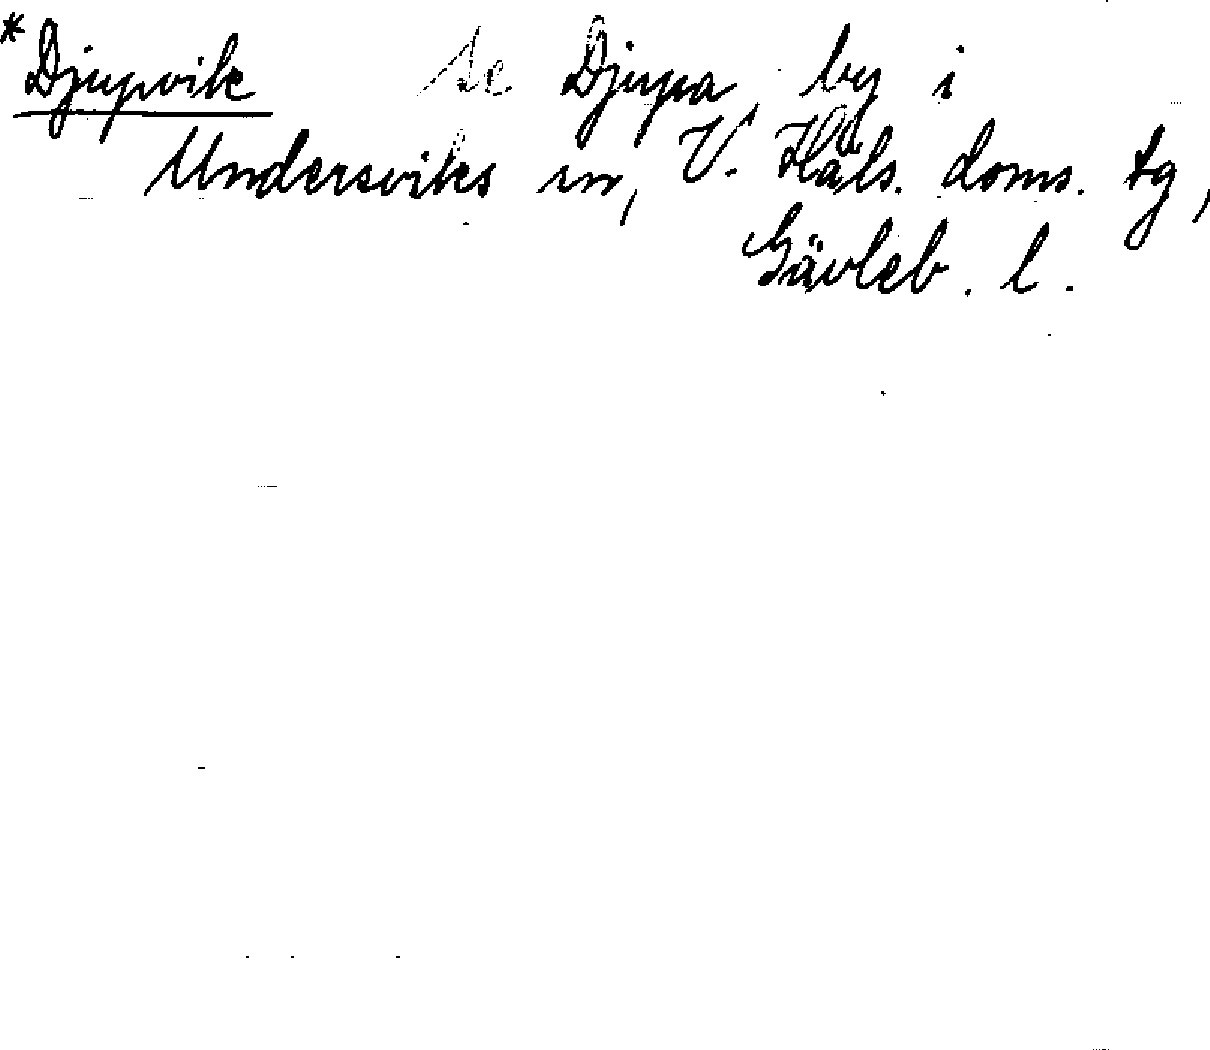 *Djupvik se Djupa, by i
Undersviks sn, V. Häls. doms. tg,
Gävleb. l.